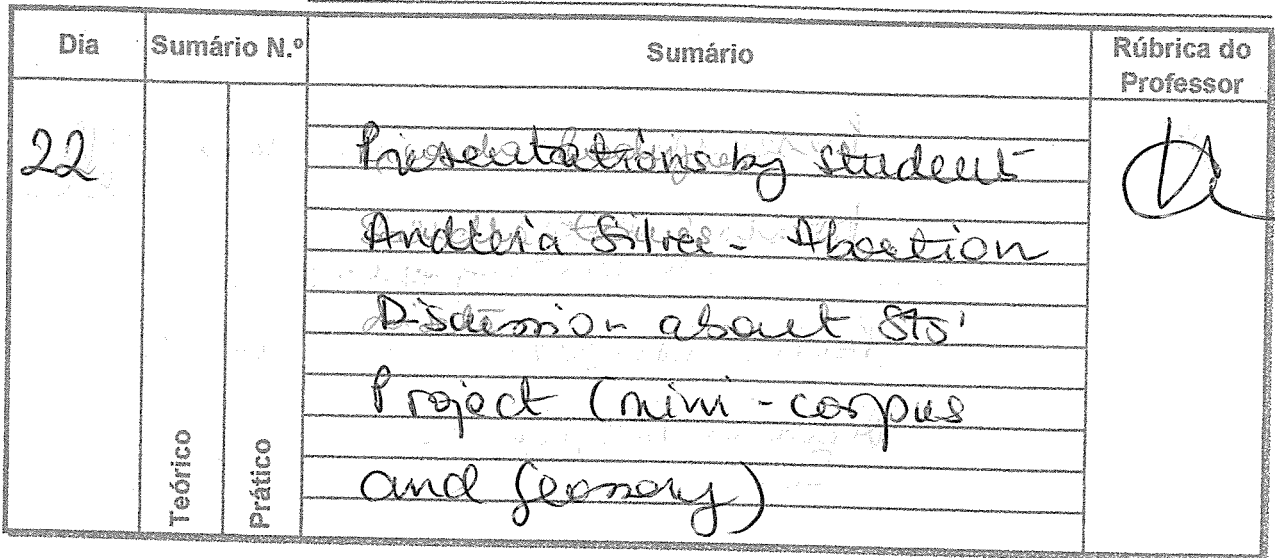 Dia Sumário N.º Sumário Rúbrica do Professor
Teórico Prático
22
Presentations by student
Andreia Silva - Abortion
Discussion about Sts'
Project (mini-corpus
and glossary)